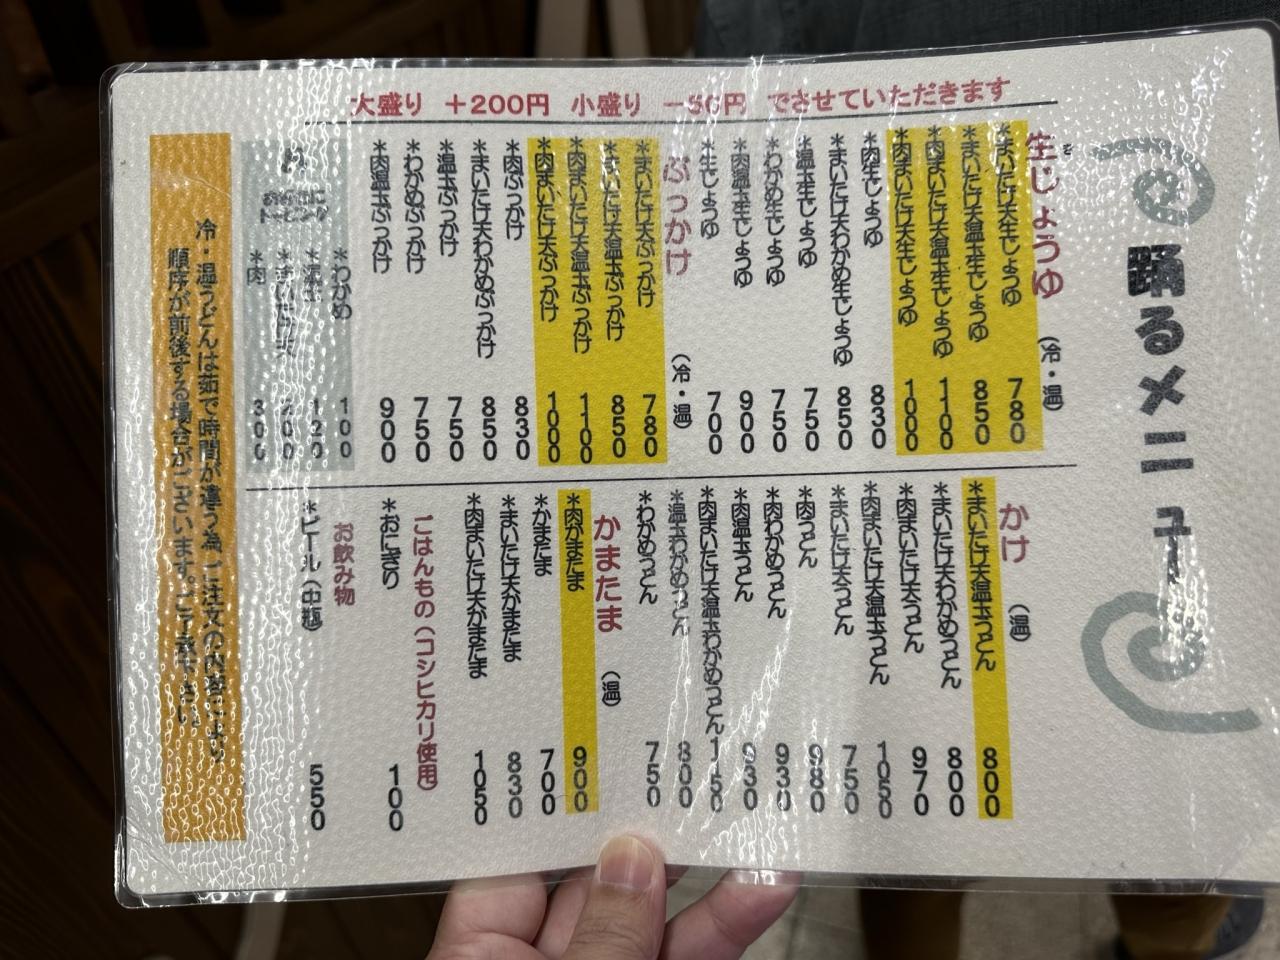 踊るメニュー
大盛り +200円 小盛り -50円 でさせていただきます
生じょうゆ (冷・温)
*まいたけ天生じょうゆ 780
*まいたけ天温玉生じょうゆ 850
*肉まいたけ天温玉生じょうゆ 1100
*肉まいたけ天生じょうゆ 1000
*肉生じょうゆ 830
*まいたけ天わかめ生じょうゆ 850
*温玉生じょうゆ 750
*わかめ生じょうゆ 750
*肉温玉生じょうゆ 900
*生じょうゆ 700
ぶっかけ (冷・温)
*まいたけ天ぶっかけ 780
*まいたけ天温玉ぶっかけ 850
*肉まいたけ天温玉ぶっかけ 1100
*肉まいたけ天ぶっかけ 1000
*肉ぶっかけ 830
*まいたけ天わかめぶっかけ 850
*温玉ぶっかけ 750
*わかめぶっかけ 750
*肉温玉ぶっかけ 900
トッピング
*わかめ 100
*温玉 120
*まいたけ天 200
*肉 300
かけ (温)
*まいたけ天温玉うどん 800
*まいたけ天わかめうどん 800
*肉まいたけ天うどん 970
*肉まいたけ天温玉うどん 1050
*まいたけ天うどん 750
*肉うどん 980
*肉わかめうどん 930
*肉温玉うどん 930
*肉まいたけ天温玉わかめうどん 1150
*温玉わかめうどん 800
*わかめうどん 750
かまたま (温)
*肉かまたま 900
*かまたま 700
*まいたけ天かまたま 830
*肉まいたけ天かまたま 1050
ごはんもの(コシヒカリ使用)
*おにぎり 100
お飲み物
*ビール(中瓶) 550
冷・温うどんは茹で時間が違う為、ご注文の内容により
順序が前後する場合がございます。ご了承下さい